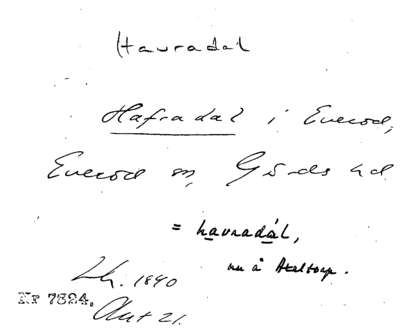 Havradal
Hafradal i Everöd,
Everöd sn, Gärds hd.
= havradál,
nu å Axeltorp.
Lh. 1890
Nr 7824.
Ant 21.